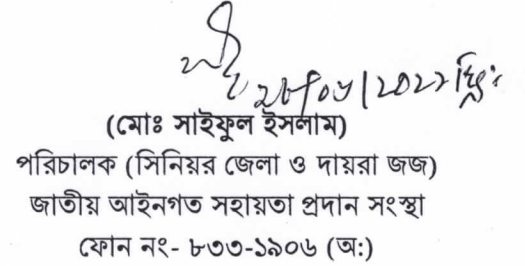 (মোঃ সাইফুল ইসলাম)
পরিচালক (সিনিয়র জেলা ও দায়রা জজ)
জাতীয় আইনগত সহায়তা প্রদান সংস্থা
ফোন নং- ৮৩৩-১৯০৬ (অ:)